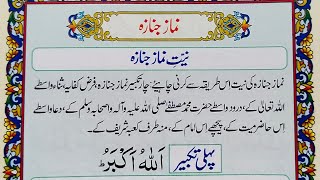 نماز جنازہ
نیّت نماز جنازہ
نماز جنازہ کی نیّت اس طریقہ سے کرنی چاہیئے: چار تکبیر نماز جنازہ، فرض کفایہ، ثناء واسطے
اللہ تعالیٰ کے، درود واسطے حضرت محمد مصطفےٰ صلی اللہ علیہ وآلہٖ واصحابہٖ وسلم کے، دعا واسطے
اِس حاضر میّت کے، پیچھے اس امام کے، منہ طرف کعبہ شریف کے۔
پہلی تکبیر
اَللّٰهُ اَكْبَرُ ط